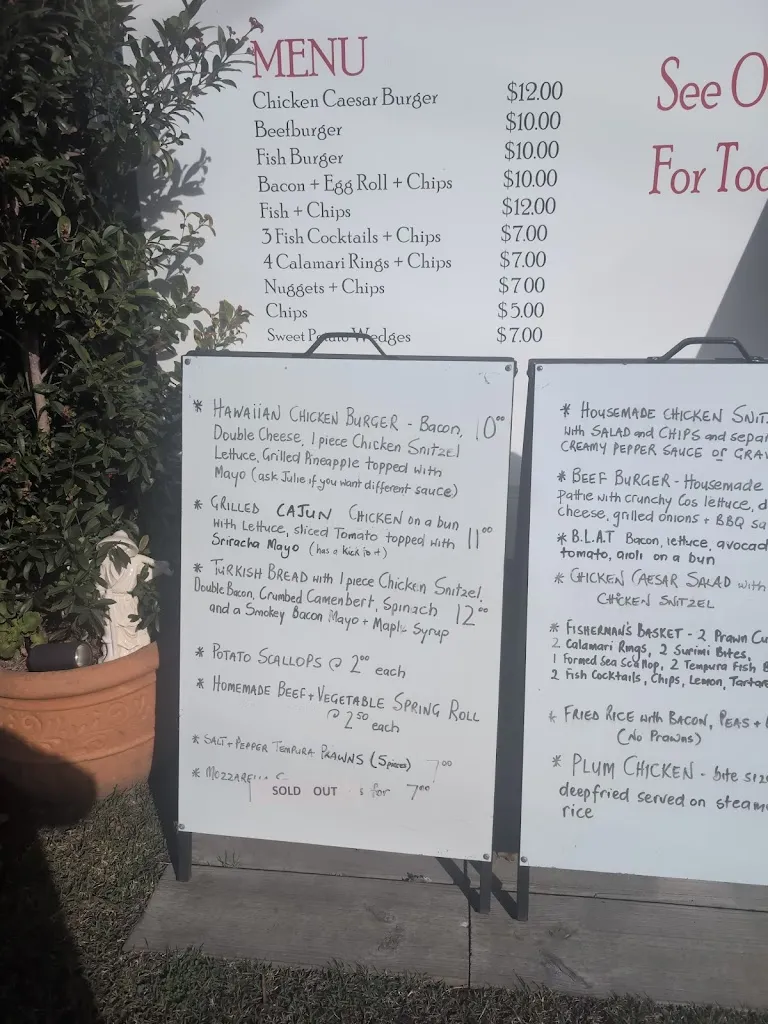 MENU
Chicken Caesar Burger $12.00
Beefburger $10.00
Fish Burger $10.00
Bacon + Egg Roll + Chips $10.00
Fish + Chips $12.00
3 Fish Cocktails + Chips $7.00
4 Calamari Rings + Chips $7.00
Nuggets + Chips $7.00
Chips $5.00
Sweet Potato Wedges $7.00
See O
For Tod
* HAWAIIAN CHICKEN BURGER - Bacon, 10⁰⁰
Double Cheese, 1 piece Chicken Snitzel
Lettuce, Grilled Pineapple topped with
Mayo (ask Julie if you want different sauce)
* GRILLED CAJUN CHICKEN on a bun
with Lettuce, sliced Tomato topped with 11⁰⁰
Sriracha Mayo (has a kick to it)
* TURKISH BREAD with 1 piece Chicken Snitzel,
Double Bacon, Crumbed Camenbert, Spinach 12⁰⁰
and a Smokey Bacon Mayo + Maple Syrup
* POTATO SCALLOPS @ 2⁰⁰ each
* HOMEMADE BEEF + VEGETABLE SPRING ROLL
@ 2⁵⁰ each
* SALT + PEPPER TEMPURA PRAWNS (5pieces) 7⁰⁰
* MOZZARELLA
SOLD OUT s for 7⁰⁰
* HOUSEMADE CHICKEN SNIT
with SALAD and CHIPS and sepa
CREAMY PEPPER SAUCE or GRAV
* BEEF BURGER - Housemade
pattie with crunchy Cos lettuce, d
cheese, grilled onions + BBQ sa
* B.L.A.T Bacon, lettuce, avocad
tomato, aioli on a bun
* CHICKEN CAESAR SALAD with
CHICKEN SNITZEL
* FISHERMAN'S BASKET - 2 Prawn Cu
2 Calamari Rings, 2 Surimi Bites,
1 Formed Sea Scallop, 2 Tempura Fish B
2 Fish Cocktails, Chips, Lemon, Tartare
* FRIED RICE with BACON, PEAS +
(No Prawns)
* PLUM CHICKEN - bite siz
deepfried served on steam
rice